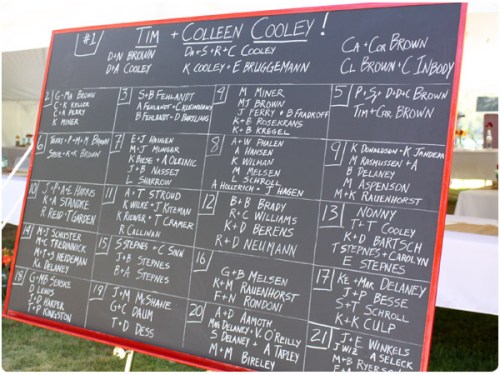 #1 TIM + COLLEEN COOLEY!
D+N BROWN DA+S+R+C COOLEY CA+COR BROWN
D+A COOLEY K COOLEY + E BRUGGEMANN CL BROWN + C INBODY
2 G+MA BROWN
C+K KELLER
C+A PERRY
K MINER
3 S+B FEHLANDT
A FEHLANDT
D FEHLANDT + D BARTLING
4 M MINER
MJ BROWN
J TERRY + B FRADKOFF
K+B ROSEKRANS
K+B KREGEL
5
TIM + COR BROWN
6
7 E+J HANSEN
M+J MUNGER
K BIESE + A OLEINIC
J+B NUSSET
L SHARROW
8 A+W PHALEN
A HANSEN
K WILMAN
M MELSEN
L SCHROLL
A HOLLERICH + J HAGEN
9 K DONALDSON + K JANDERA
M RASMUSSEN + A
B DELANEY
M ASPENSON
M+K RAUENHORST
10 J+A+E HARRIS
K+A STANDKE
R REID + T GARDEN
11 A+T STROUD
K WILKE + J KITEMAN
K KIEWER + T CRAMER
R CALLINAN
12 B+B BRADY
R+C WILLIAMS
K+D BERENS
R+D NEUMANN
13 NONNY
T+T COOLEY
K+D BARTSCH
T STEPNES + CAROLYN
E STEPNES
14 M+J SCHUSTER
M+C TREDINNICK
M+T+S HEIDEMAN
KA DELANEY
15 S STEPNES + C SINN
J+B STEPNES
B+A STEPNES
16
G+B MELSEN
K+M RAUENHORST
F+N RONDONI
17 KE+MAR DELANEY
J+P BESSE
S+T SCHROLL
K+K CULP
18
D LEWIS
J+D HARPER
T+D KINGSTON
19 J+M MCSHANE
G+C DAUM
T+D DESS
20 A+D AAMOTH
MAR DELANEY + K O'REILLY
S DELANEY + A TAPLEY
M+M BIRELEY
21 J+E WINKELS
J WIZ A SELECK
M+B RYERSON